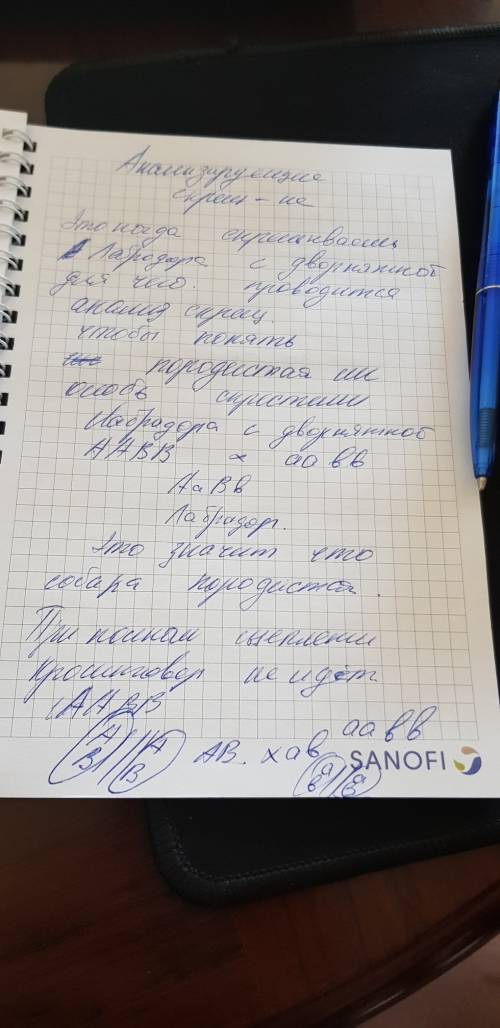 Анализирующее
скрещ-не
Это когда скрещиваем
Лабрадора с дворняжкой
для чего. проводится
анализ скрещ.
чтобы понять
породистая ли
особь скрестили
Лабрадора с дворняжкой
ААВВ × аавв
АаВв
Лабрадор.
Это значит что
собара породистая.
При полном сцеплении
Кроссинговер не идёт
ААВВ аавв
А В А В АВ. х ав а в а в
SANOFI